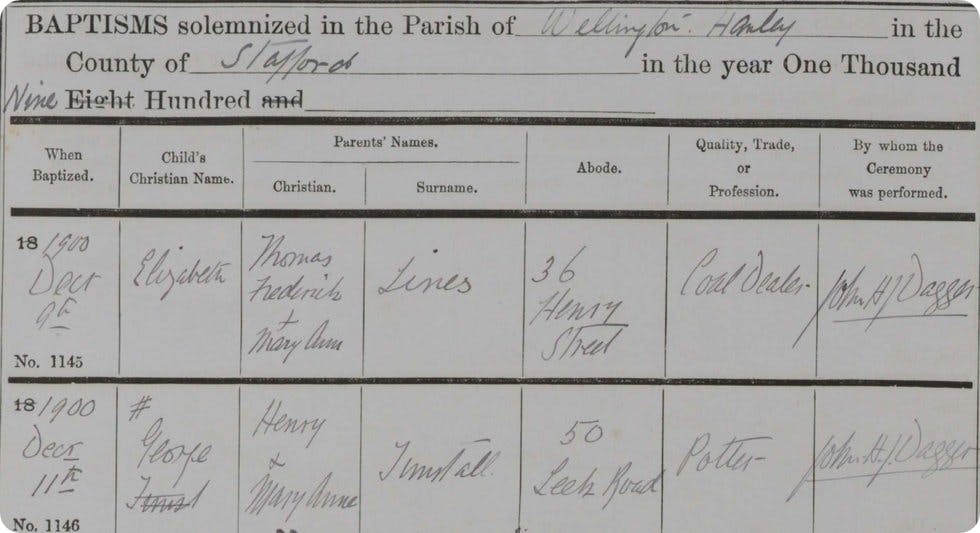 BAPTISMS solemnized in the Parish of Wellington. Hanley in the
County of Stafford in the year One Thousand
Nine Eight Hundred and
When Baptized.
Child's Christian Name.
Parents' Names.
Christian.
Surname.
Abode.
Quality, Trade, or Profession.
By whom the Ceremony was performed.
18 1900
Decr
9th
No. 1145
Elizabeth
Thomas
Frederick
+
Mary Ann
Lines
36
Henry
Street
Coal Dealer
John H J Dagger
18 1900
Decr
11th
No. 1146
#
George
Henry
&
Mary Anne
Tunstall.
50
Leek Road
Potter
John H. J. Dagger